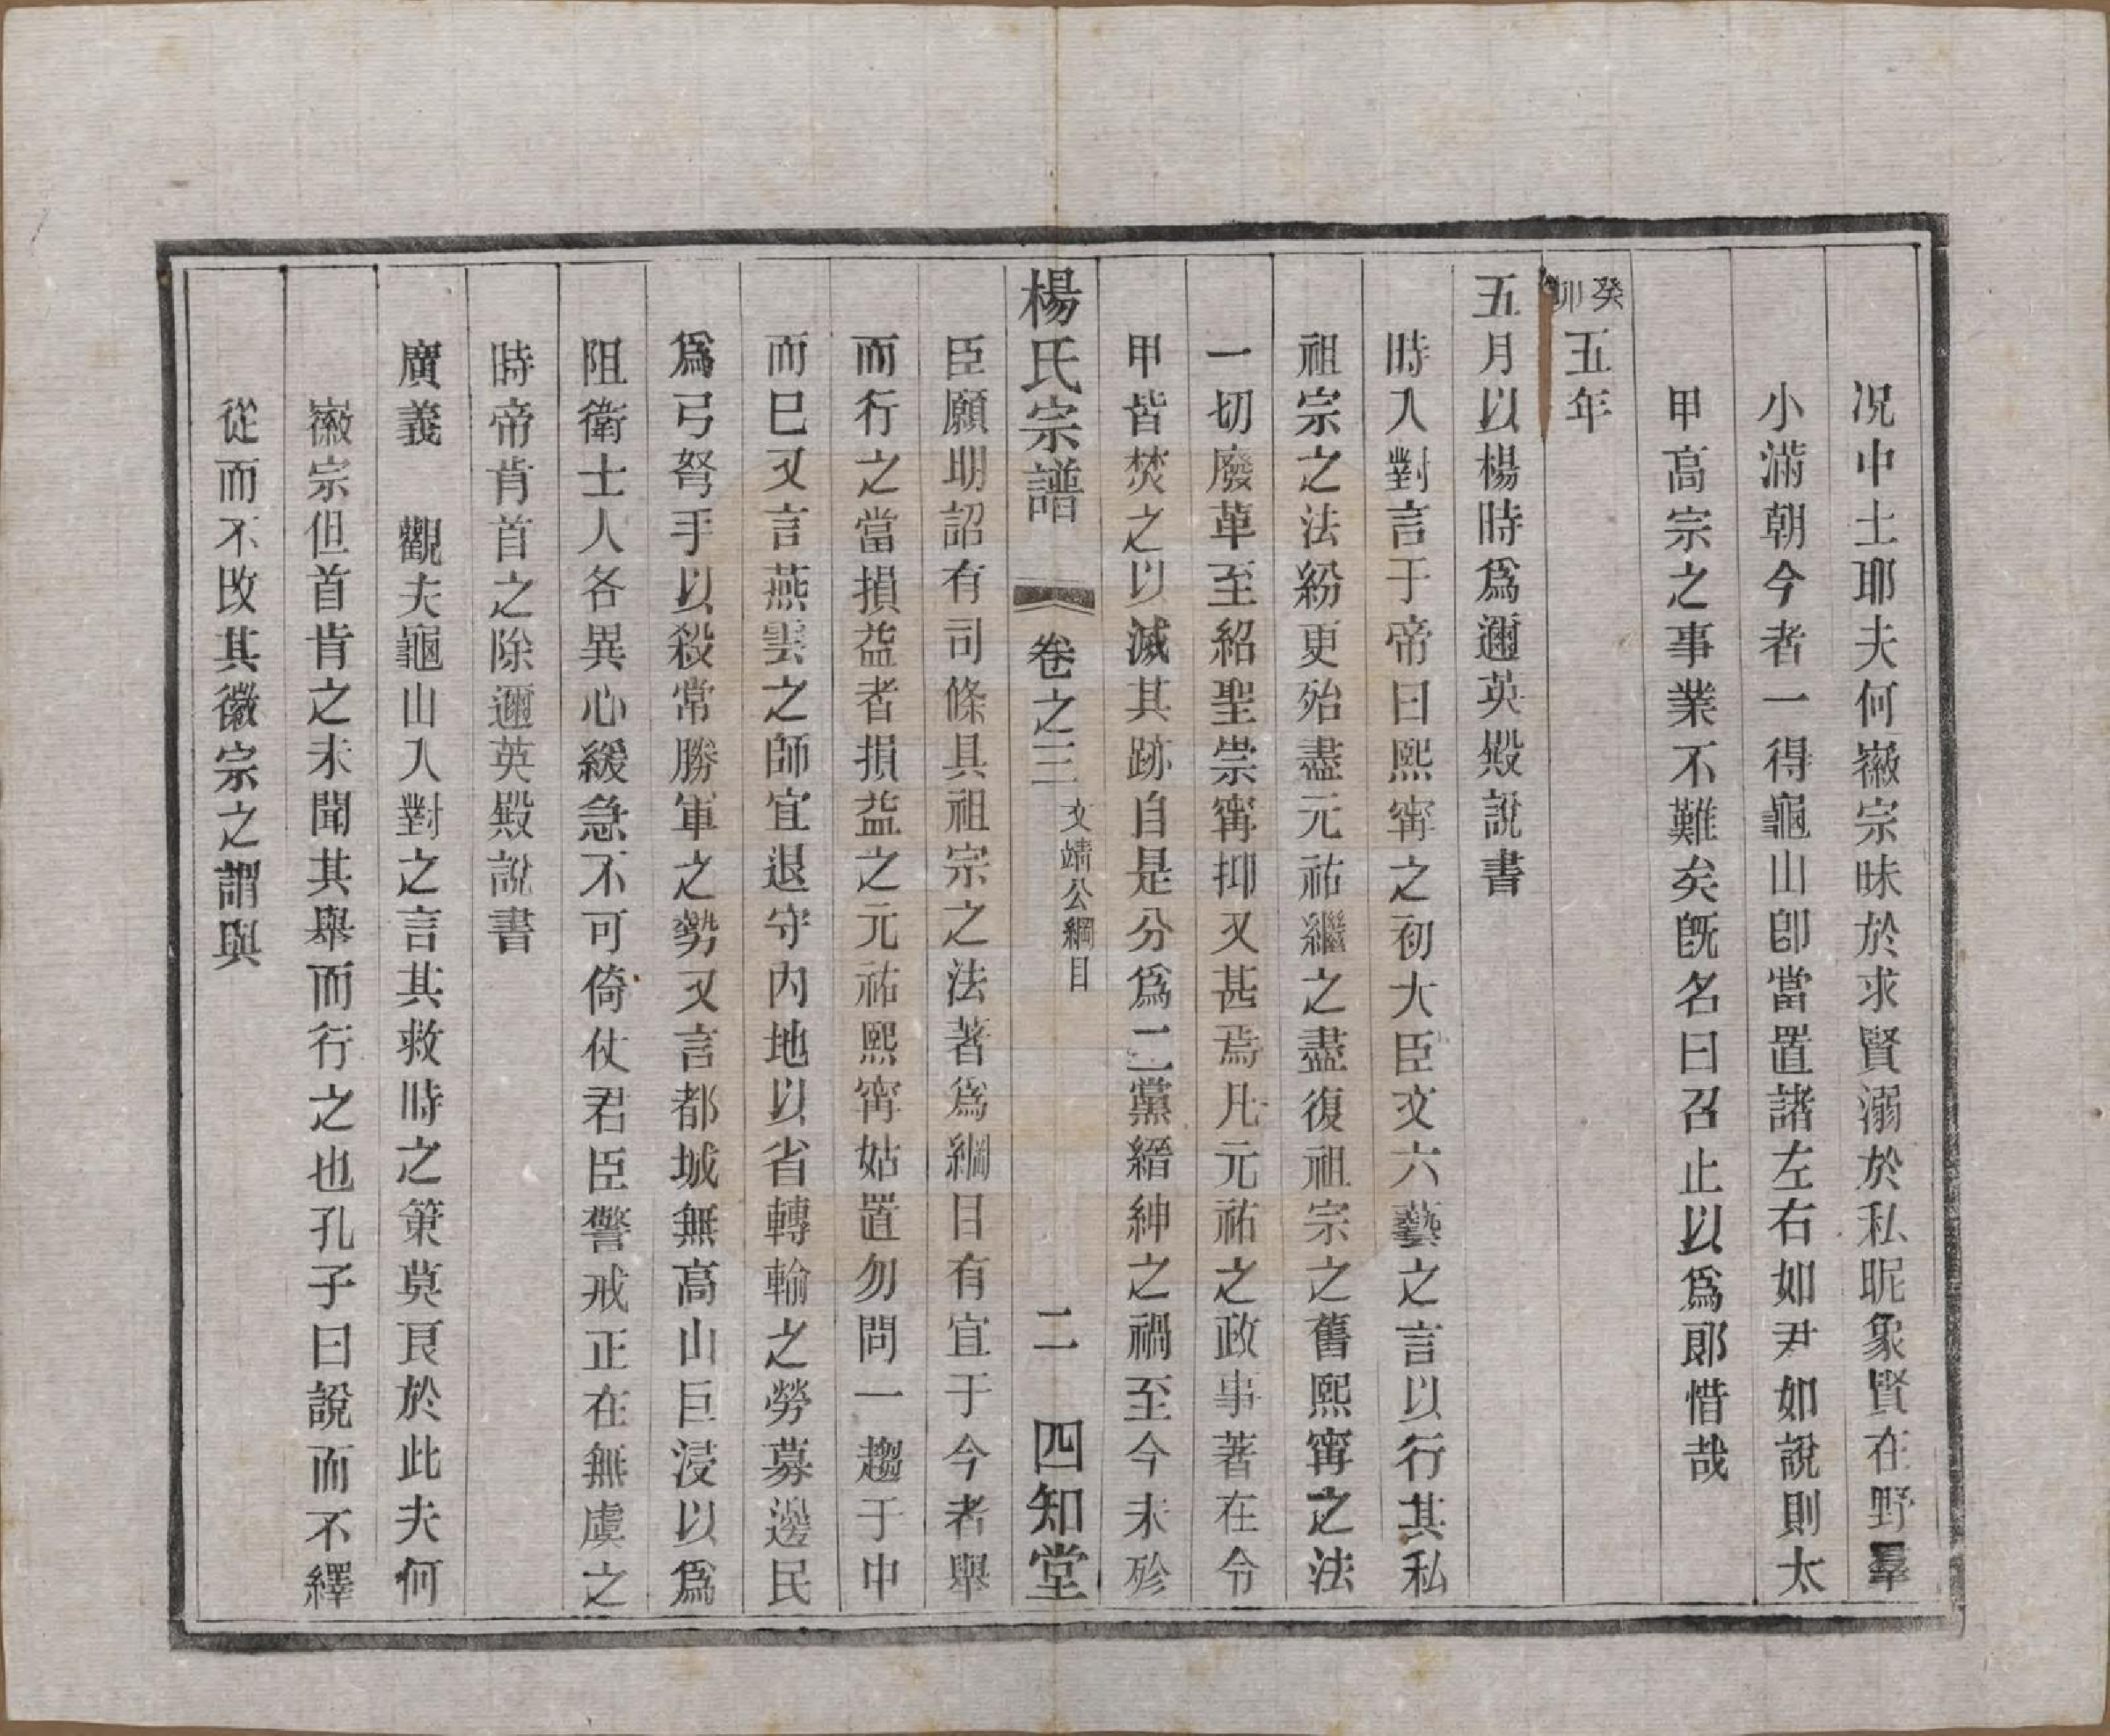 况中土耶夫何徽宗昧於求賢溺於私昵象賢在野羣
小滿朝今者一得龜山卽當置諸左右如尹如說則太
甲高宗之事業不難矣旣名曰召止以爲郞惜哉
癸卯五年
五月以楊時爲邇英殿說書
時入對言于帝曰熙甯之初大臣文六藝之言以行其私
祖宗之法紛更殆盡元祐繼之盡復祖宗之舊熙甯之法
一切廢革至紹聖崇甯抑又甚焉凡元祐之政事著在令
甲皆焚之以滅其跡自是分爲二黨縉紳之禍至今未殄
楊氏宗譜 卷之三 文靖公綱目 二 四知堂
臣願明詔有司條具祖宗之法著爲綱目有宜于今者舉
而行之當損益者損益之元祐熙甯姑置勿問一趨于中
而已又言燕雲之師宜退守內地以省轉輸之勞募邊民
爲弓弩手以殺常勝軍之勢又言都城無高山巨浸以爲
阻衛士人各異心緩急不可倚仗君臣警戒正在無虞之
時帝肯首之除邇英殿說書
廣義　觀夫龜山入對之言其救時之策莫良於此夫何
徽宗但首肯之未聞其舉而行之也孔子曰說而不繹
從而不改其徽宗之謂與